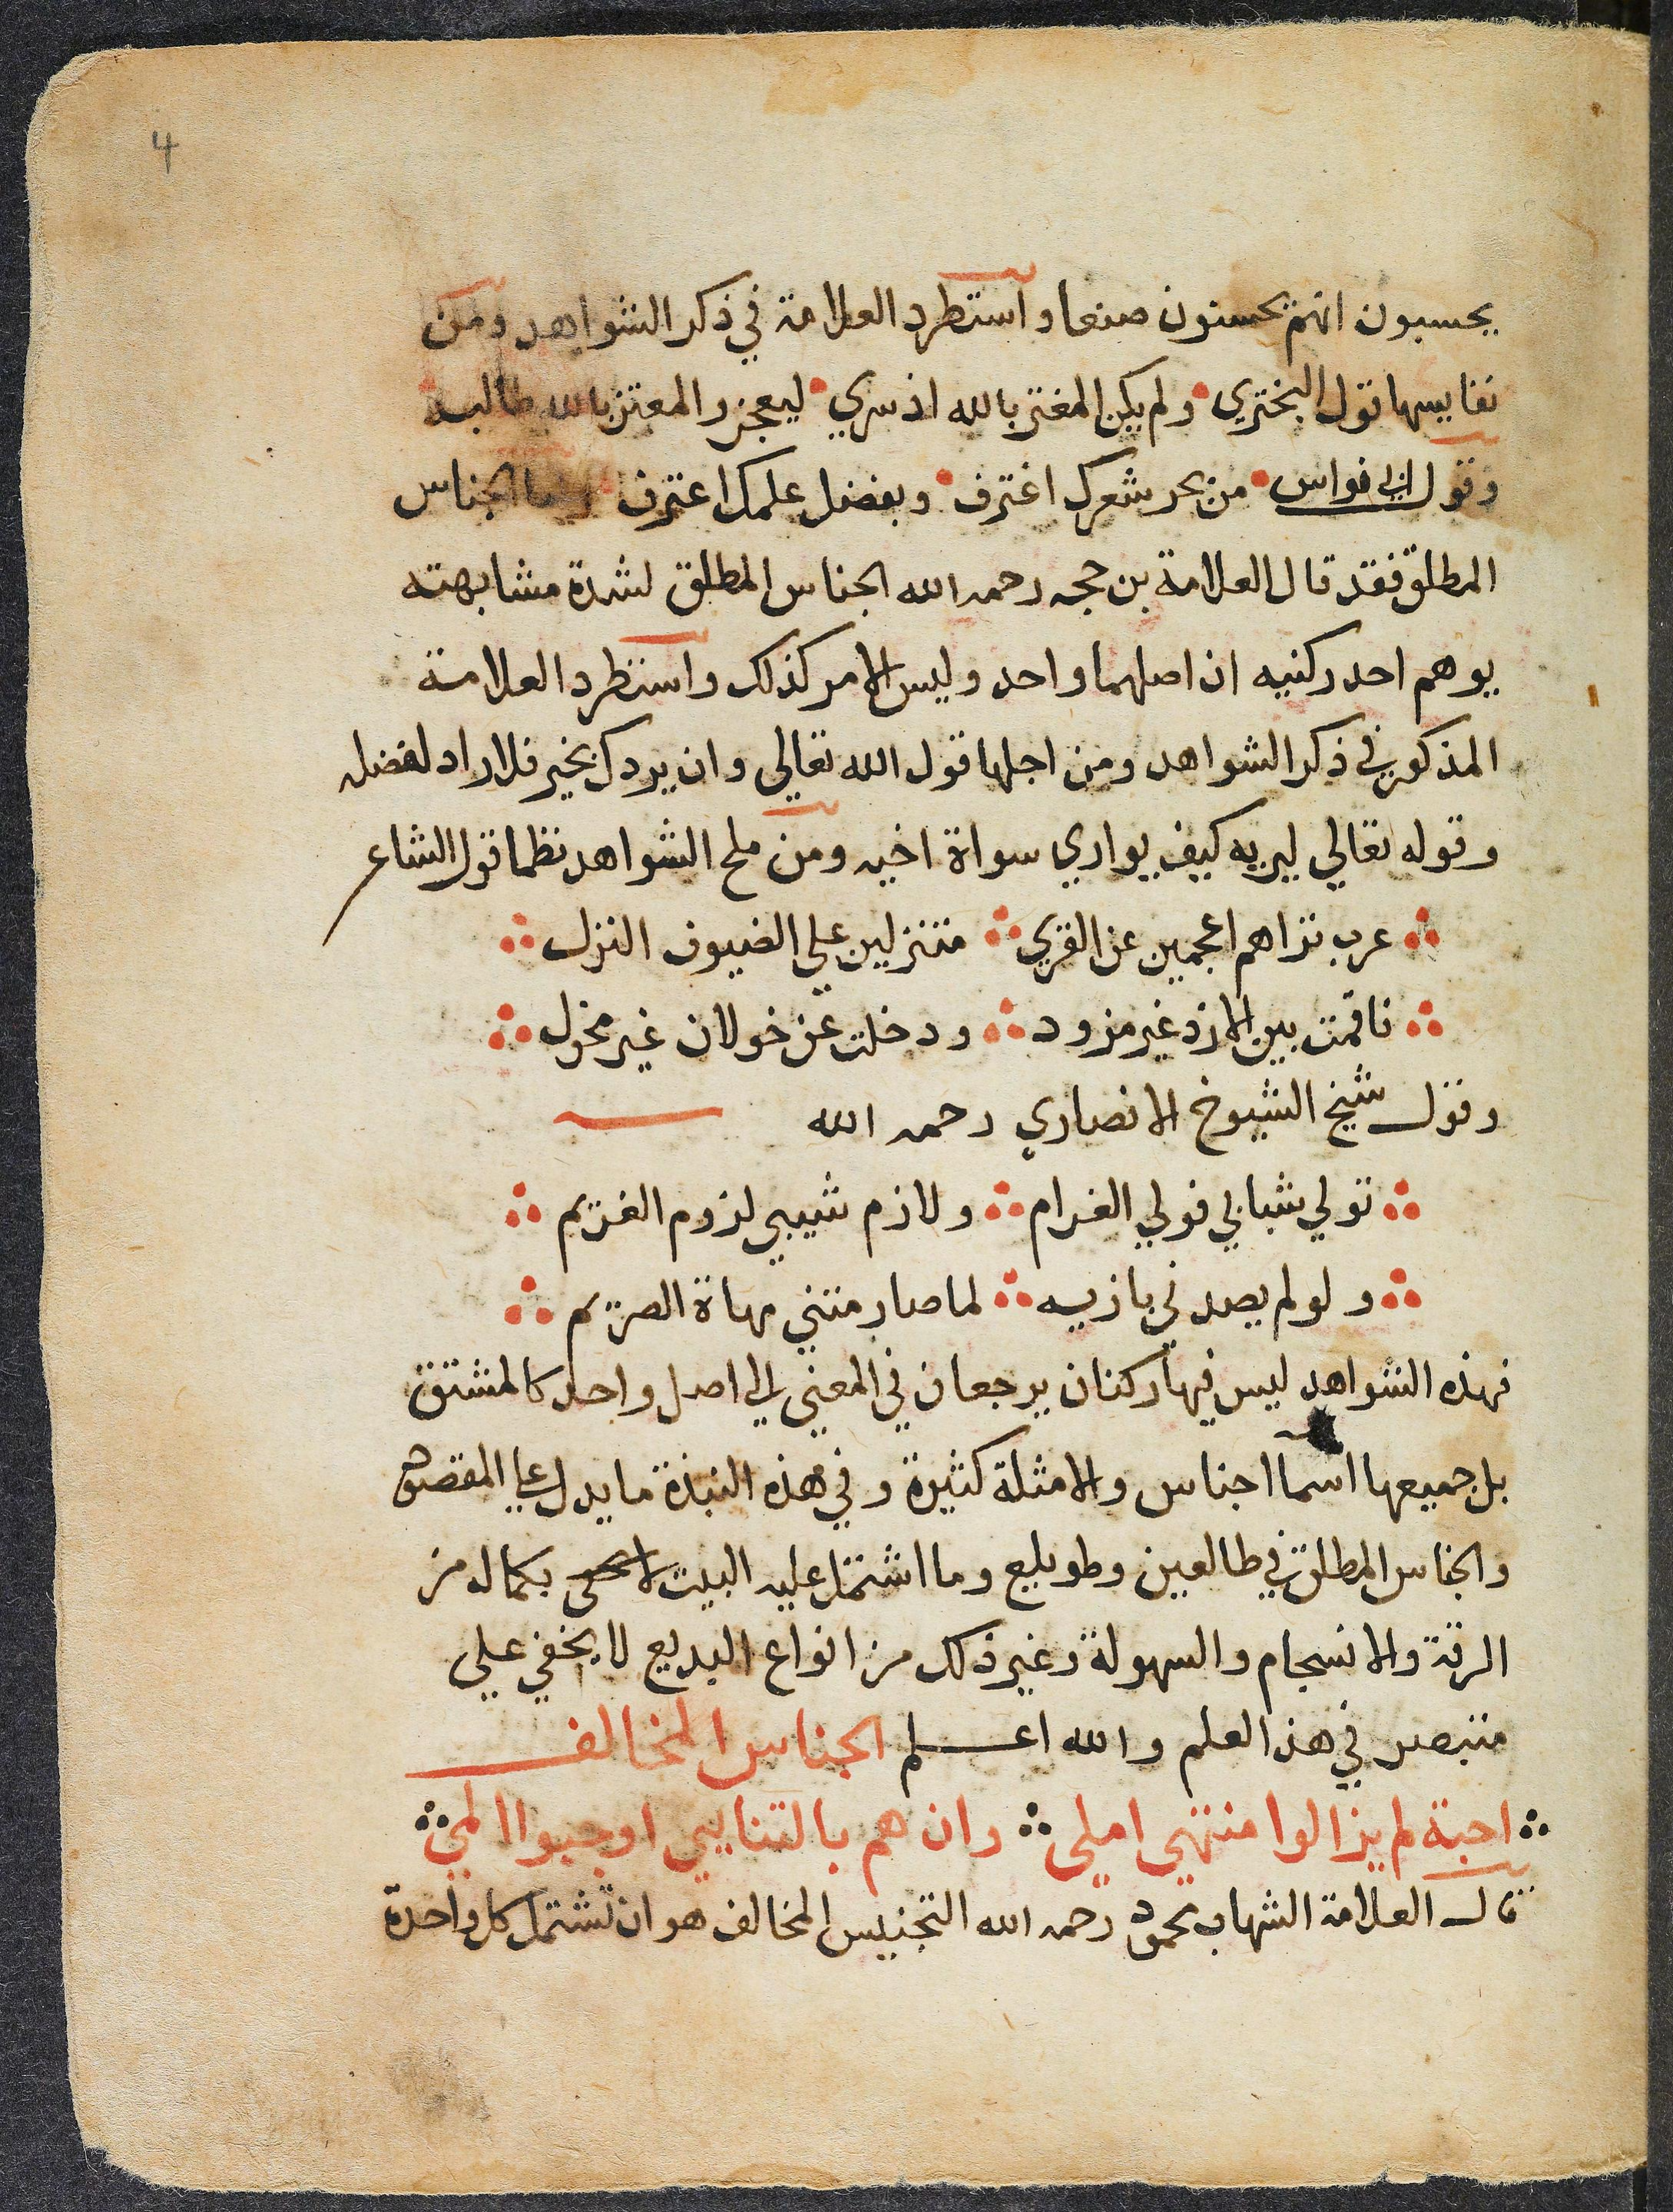 4
يحسبون انهم يحسنون صنعا واستطرد العلامة في ذكر الشواهد ومن
نفايسها قول البختري ولم يكن المغتر بالله اذ سري ليعجز والمعتز بالله طالبه
وقول ابي فواس من بحر شعرك اغترف وبفضل علمك اعترف واما الجناس
المطلق فقد قال العلامة بن حجه رحمه الله الجناس المطلق لشدة مشابهته
يوهم احد ركنيه ان اصلهما واحد وليس الامر كذلك واستطرد العلامة
المذكور في ذكر الشواهد ومن اجلها قول الله تعالي وان يردك بخير فلا راد لفضله
وقوله تعالي ليريه كيف يواري سواة اخيه ومن ملح الشواهد نظما قول الشاعر
عرب تراهم اعجمين عن القري متنزلين علي الضيوف النزل
فاقمت بين الازد غير مزود ودخلت عن خولان غير مخول
وقول شيخ الشيوخ الانصاري رحمه الله
تولي شبابي فولي الغرام ولازم شيبي لزوم الغريم
ولو لم يصدني بازيه لما صار منني مهاة الصريم
فهذه الشواهد ليس فيها ركنان يرجعان في المعني الي اصل واحد كالمشتق
بل جميعها اسما اجناس والامثلة كثيرة وفي هذه النبذة ما يدل علي المقصود
والجناس المطلق في طالعين وطويلع وما اشتمل عليه البيت بكماله من
الرقة والانسجام والسهولة وغير ذلك من انواع البديع لا يخفي علي
متبصر في هذ العلم والله اعلم الجناس المخالف
احبة لم يزالوا منتهي املي وان هم بالتنايي اوجبوا المي
قال العلامة الشهاب محمود رحمه الله التجنيس المخالف هو ان تشتمل كل واحدة